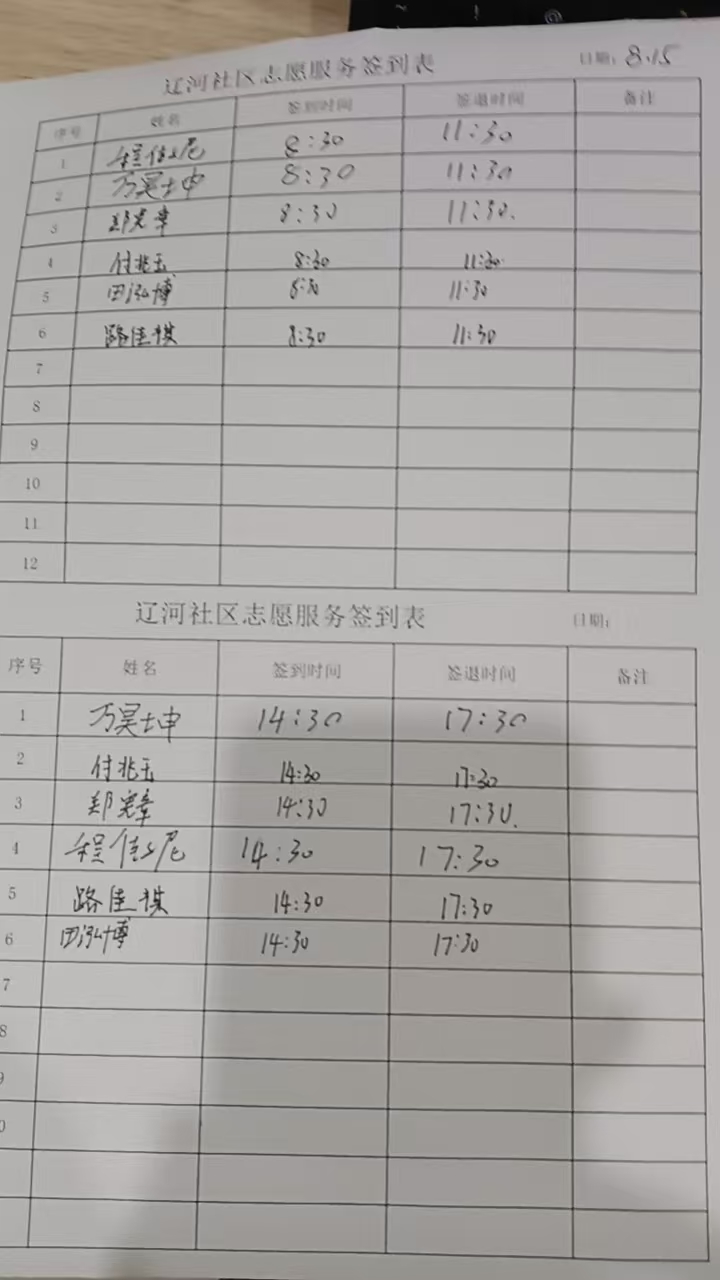 辽河社区志愿服务签到表 日期: 8.15
序号 姓名 签到时间 签退时间 备注
1 8:30 11:30
2 万昊坤 8:30 11:30
3 郑宪章 8:30 11:30.
4 付兆玉 8:30 11:30
5 田泓博 8:30 11:30
6 路佳祺 8:30 11:30
7
8
9
10
11
12
辽河社区志愿服务签到表 日期:
序号 姓名 签到时间 签退时间 备注
1 万昊坤 14:30 17:30
2 付兆玉 14:30 17:30
3 郑宪章 14:30 17:30.
4 14:30 17:30
5 路佳祺 14:30 17:30
6 田泓博 14:30 17:30
7
8
9
0